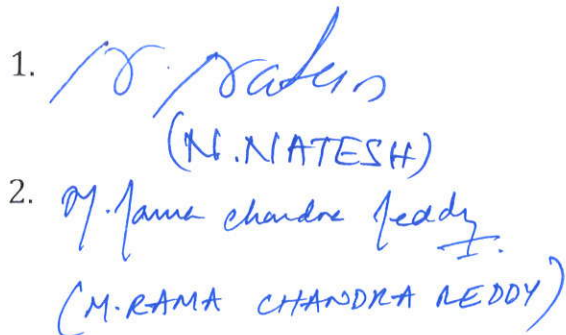 1. N. Natesh
(N. NATESH)
2. M. Rama chandra Reddy
(M. RAMA CHANDRA REDDY)